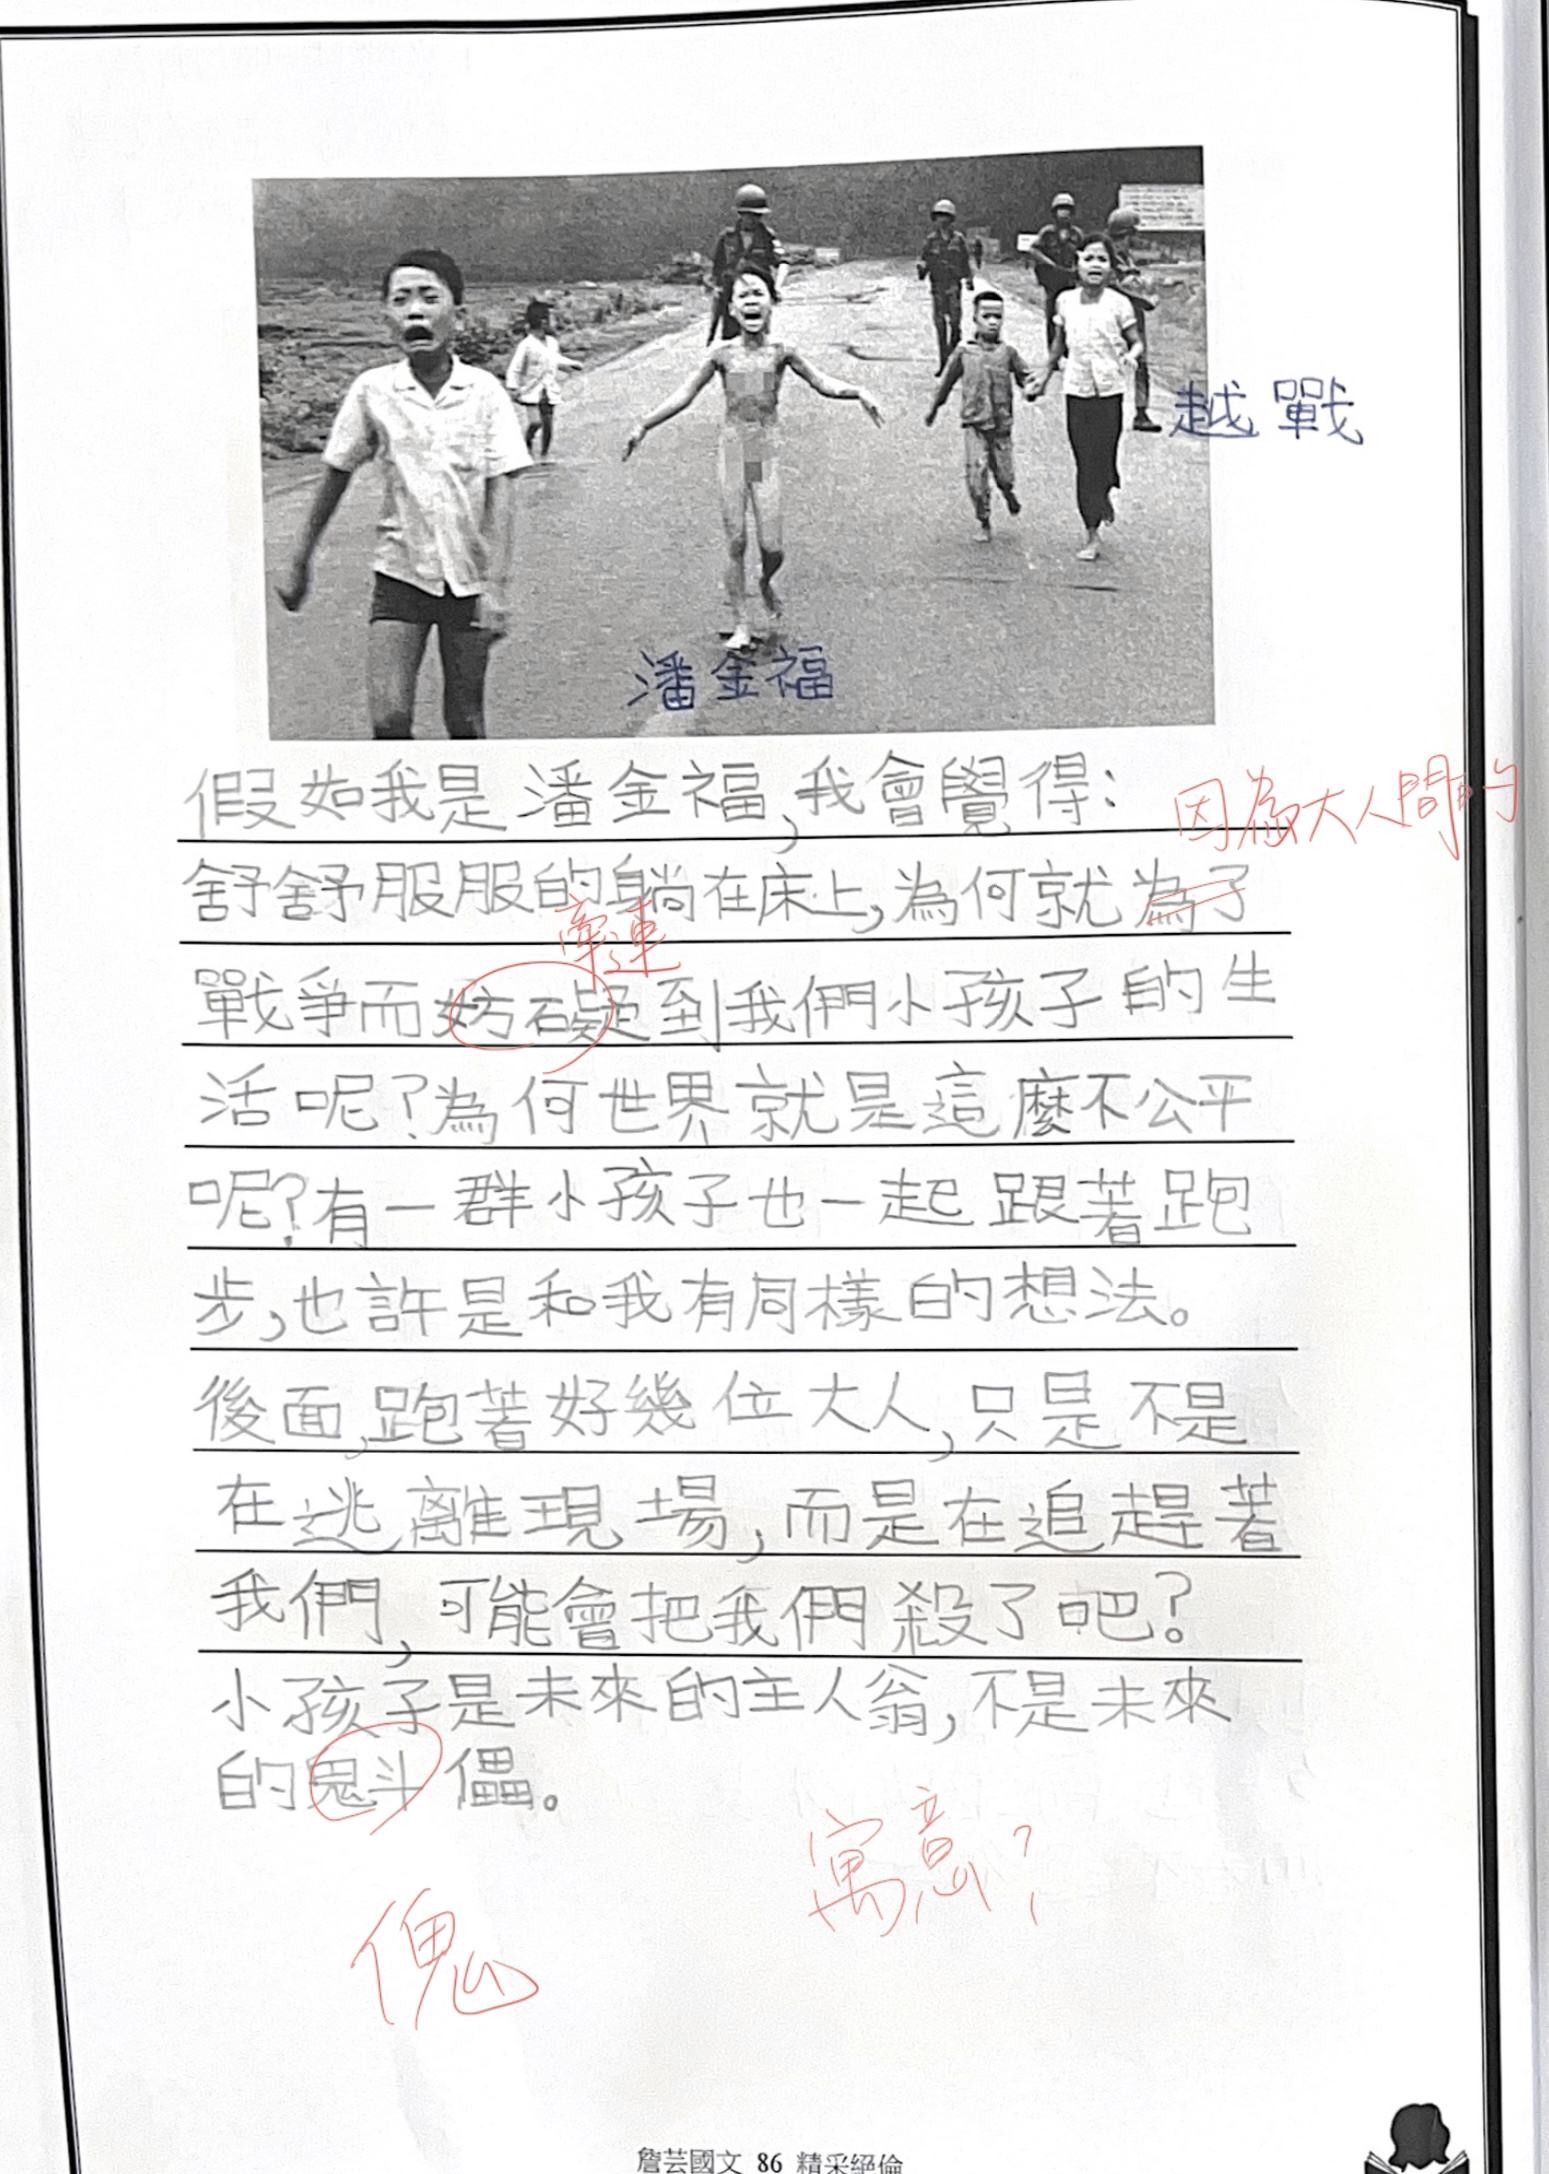 越戰
潘金福
假如我是潘金福,我會覺得:
因為大人間的
舒舒服服的躺在床上,為何就為了
牽連
戰爭而妨礙到我們小孩子的生
活呢?為何世界就是這麼不公平
呢?有一群小孩子也一起跟著跑
步,也許是和我有同樣的想法。
後面,跑著好幾位大人,只是不是
在逃離現場,而是在追趕著
我們,可能會把我們殺了吧?
小孩子是未來的主人翁,不是未來
的儡。
寓意?
傀
詹芸國文 86 精采絕倫